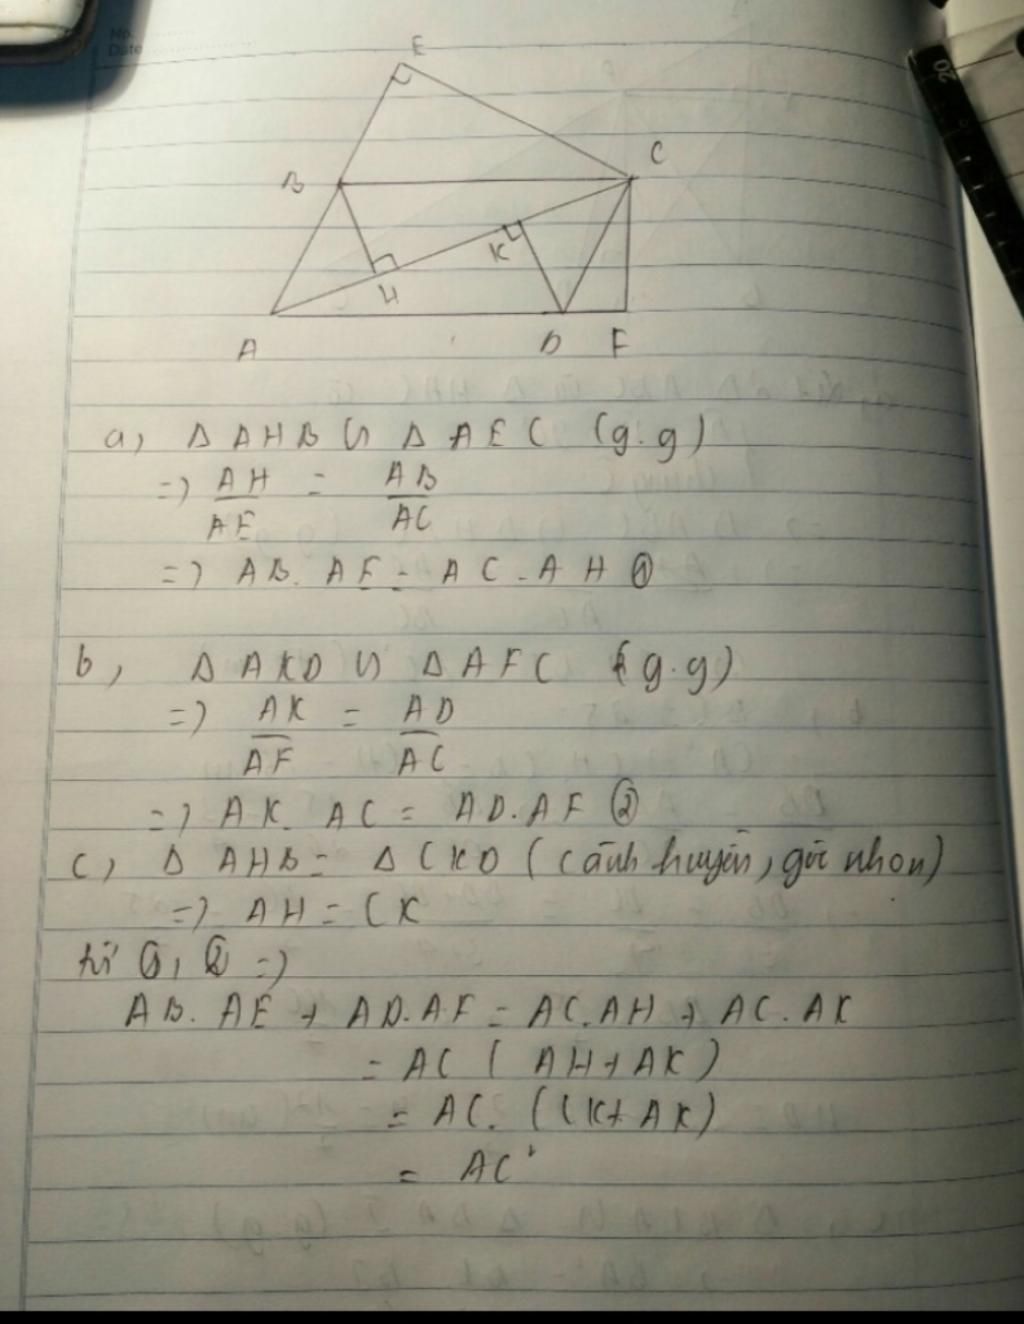 No.
Date
20
E
B
C
K
H
A
D
F
a, Δ AHB ∽ Δ AEC (g.g)
=) AH/AE = AB/AC
=) AB. AE = AC. AH ①
b, Δ AKD ∽ Δ AFC (g.g)
=) AK/AF = AD/AC
=) AK. AC = AD.AF ②
c, Δ AHB = Δ CKD (cạnh huyền, góc nhọn)
=) AH = CK
từ ①, ② =)
AB. AE + AD.AF = AC.AH + AC. AK
= AC ( AH + AK )
= AC. (CK + AK)
= AC²